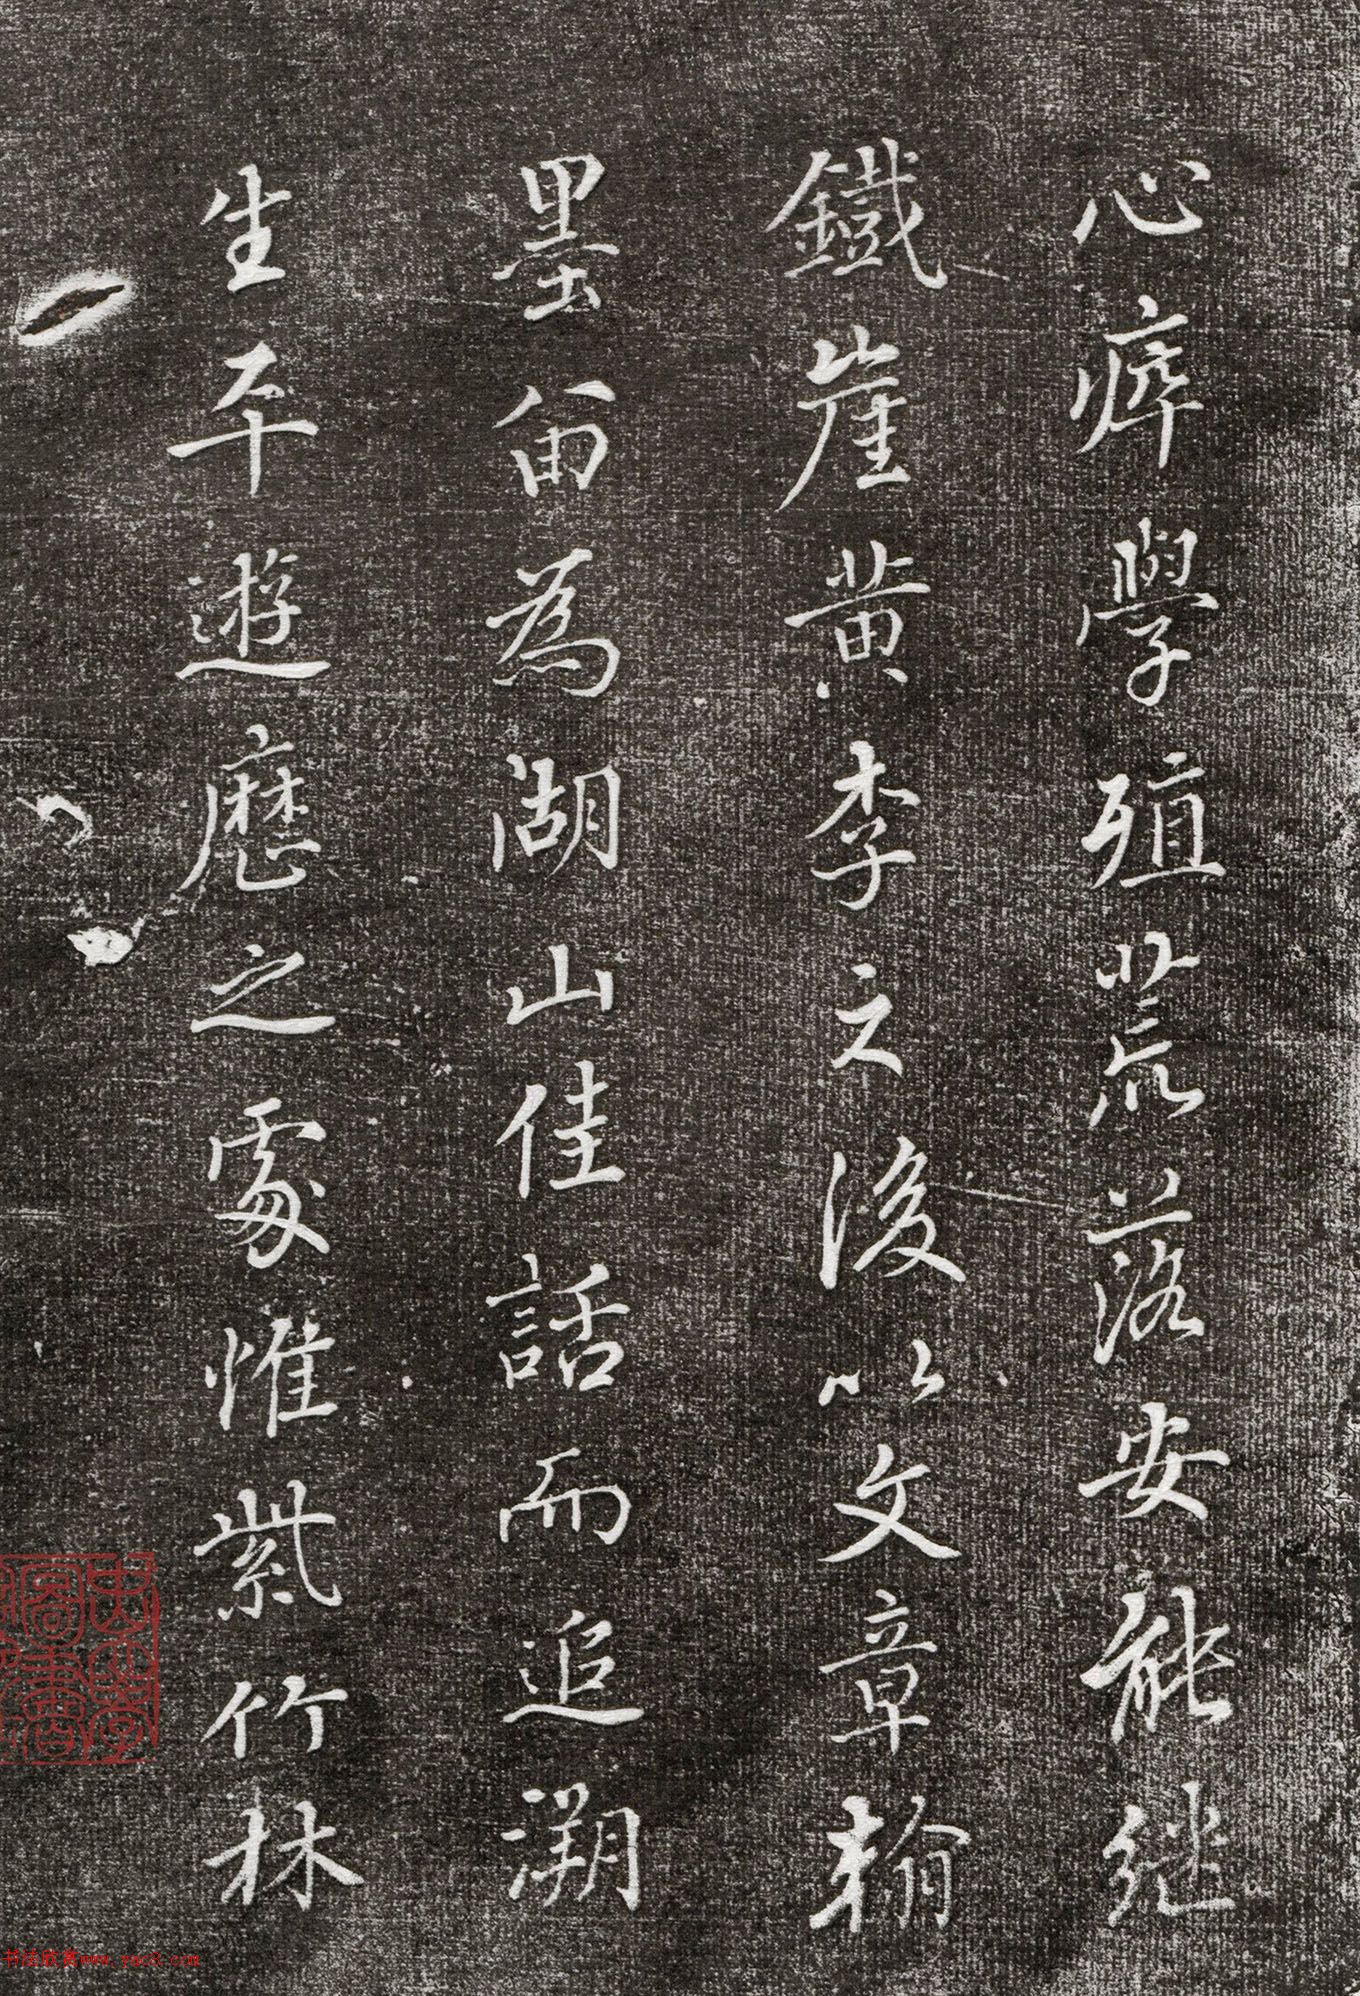 心瘁學殖荒落安能继
鐵崖黄李之後以文章翰
墨留為湖山佳話而追溯
生平遊歷之處惟紫竹林
书法欣赏www.yac8.com